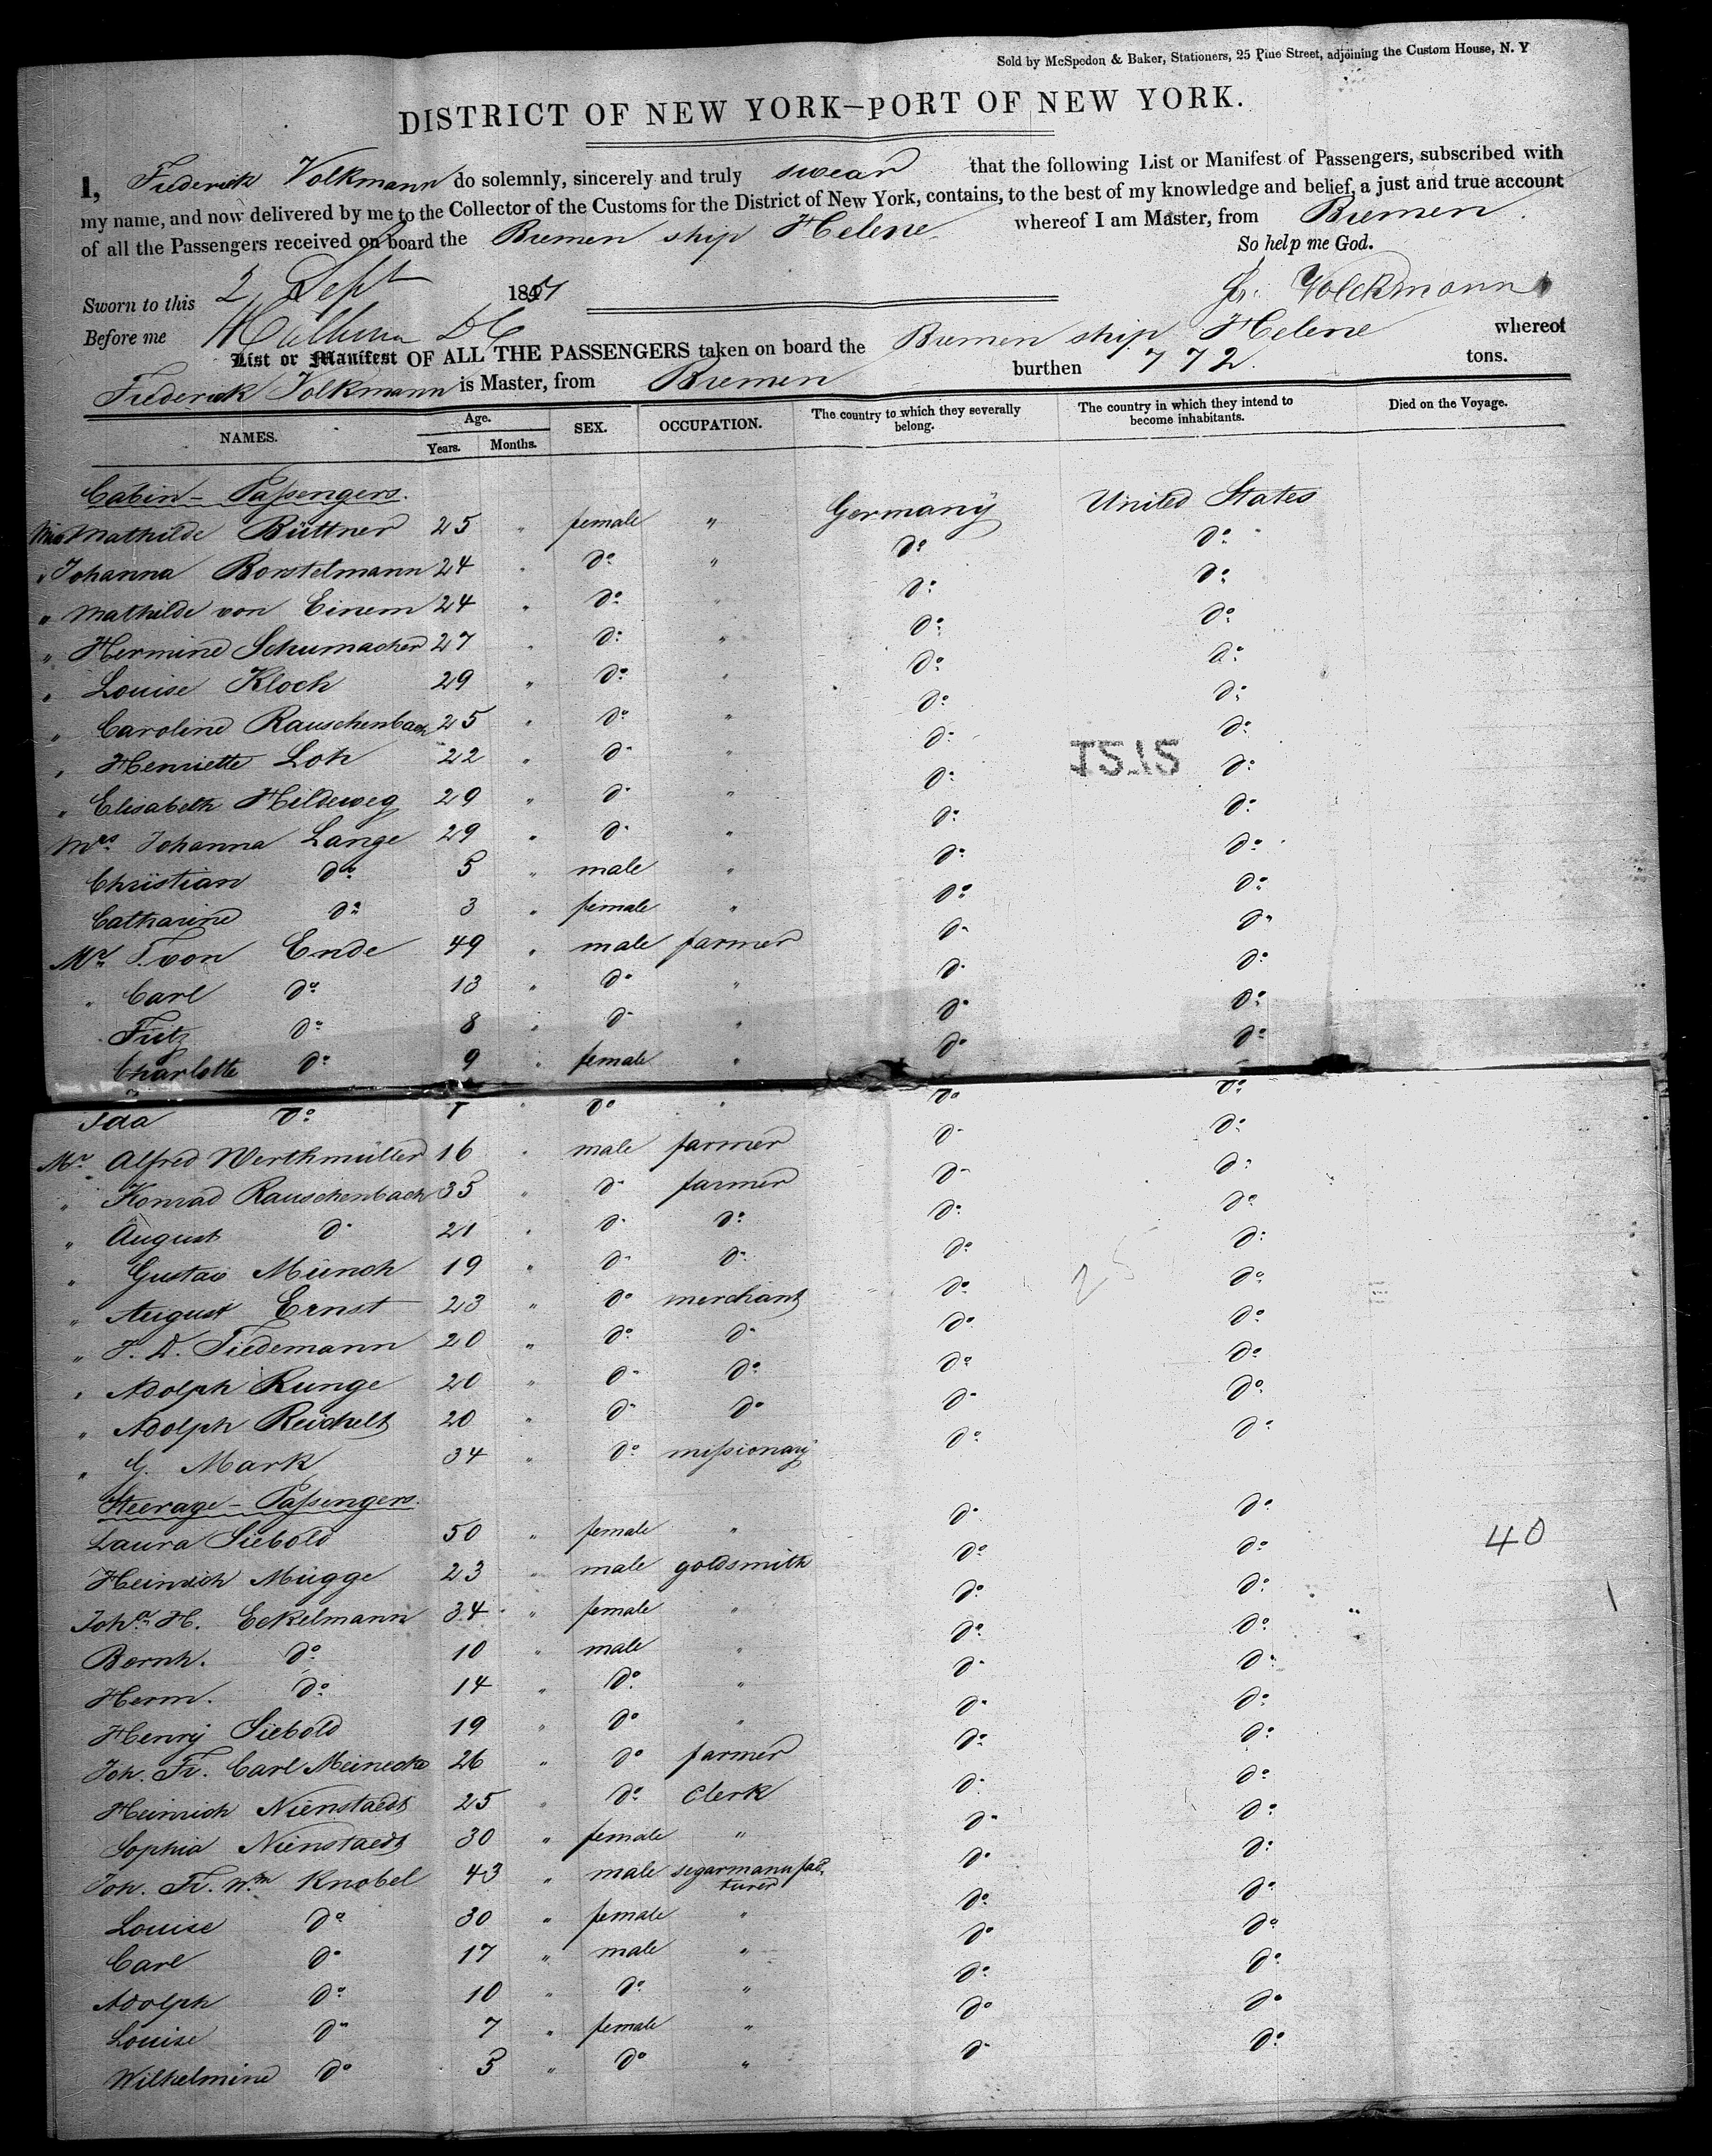 Sold by McSpedon & Baker, Stationers, 25 Pine Street, adjoining the Custom House, N. Y
DISTRICT OF NEW YORK–PORT OF NEW YORK.
I, Frederick Volkmann do solemnly, sincerely and truly swear that the following List or Manifest of Passengers, subscribed with
my name, and now delivered by me to the Collector of the Customs for the District of New York, contains, to the best of my knowledge and belief, a just and true account
of all the Passengers received on board the Bremen ship Helene whereof I am Master, from Bremen.
So help me God.
Sworn to this 2 Sept 18
Fr. Volckmann
Before me
List or Manifest OF ALL THE PASSENGERS taken on board the Bremen ship Helene whereof
Frederick Volkmann is Master, from Bremen burthen 772 tons.
NAMES. Age. Years. Months. SEX. OCCUPATION. The country to which they severally belong. The country in which they intend to become inhabitants. Died on the Voyage.
Cabin - Passengers.
Miss Mathilde Büttner 25 " female " Germany United States
" Johanna Borstelmann 24 " do " do do
" Mathilde von Einem 24 " do " do do
" Hermine Schumacher 27 " do " do do
" Louise Kloch 29 " do " do do
" Caroline Rauschenbach 25 " do " do do
" Henriette Loh 22 " do " do do
" Elisabeth Hildeweg 29 " do " do do
Mrs. Johanna Lange 29 " do " do do
Christian do 5 " male " do do
Catharine do 3 " female " do do
Mr. T. von Ende 49 " male farmer do do
" Carl do 13 " do " do do
Fritz do 8 " do " do do
Charlotte do 9 " female " do do
Ida do " do " do do
Mr. Alfred Werthmüller 16 " male farmer do do
" Konrad Rauschenbach 35 " do farmer do do
" August do 21 " do do do do
" Gustav Münch 19 " do do do do
" August Ernst 23 " do merchant do do
" J. D. Tiedemann 20 " do do do do
" Adolph Runge 20 " do do do do
" Adolph Reichelt 20 " do do do do
" G. Mark 34 " do missionary do do
25
Steerage - Passengers.
Laura Siebold 50 " female " do do
40
Heinrich Mügge 23 " male goldsmith do do
Joha. H. Eckelmann 34 " female " do do
Bernh. do 10 " male " do do
Herm. do 14 " do " do do
Henry Siebold 19 " do " do do
Joh. Fr. Carl Meinecke 26 " do farmer do do
Heinrich Nienstaedt 25 " do Clerk do do
Sophia Nienstaedt 30 " female " do do
Joh. Fr. Wm Knobel 43 " male segarmanufacturer do do
Louise do 30 " female " do do
Carl do 17 " male " do do
Adolph do 10 " do " do do
Louise do 7 " female " do do
Wilhelmine do 5 " do " do do